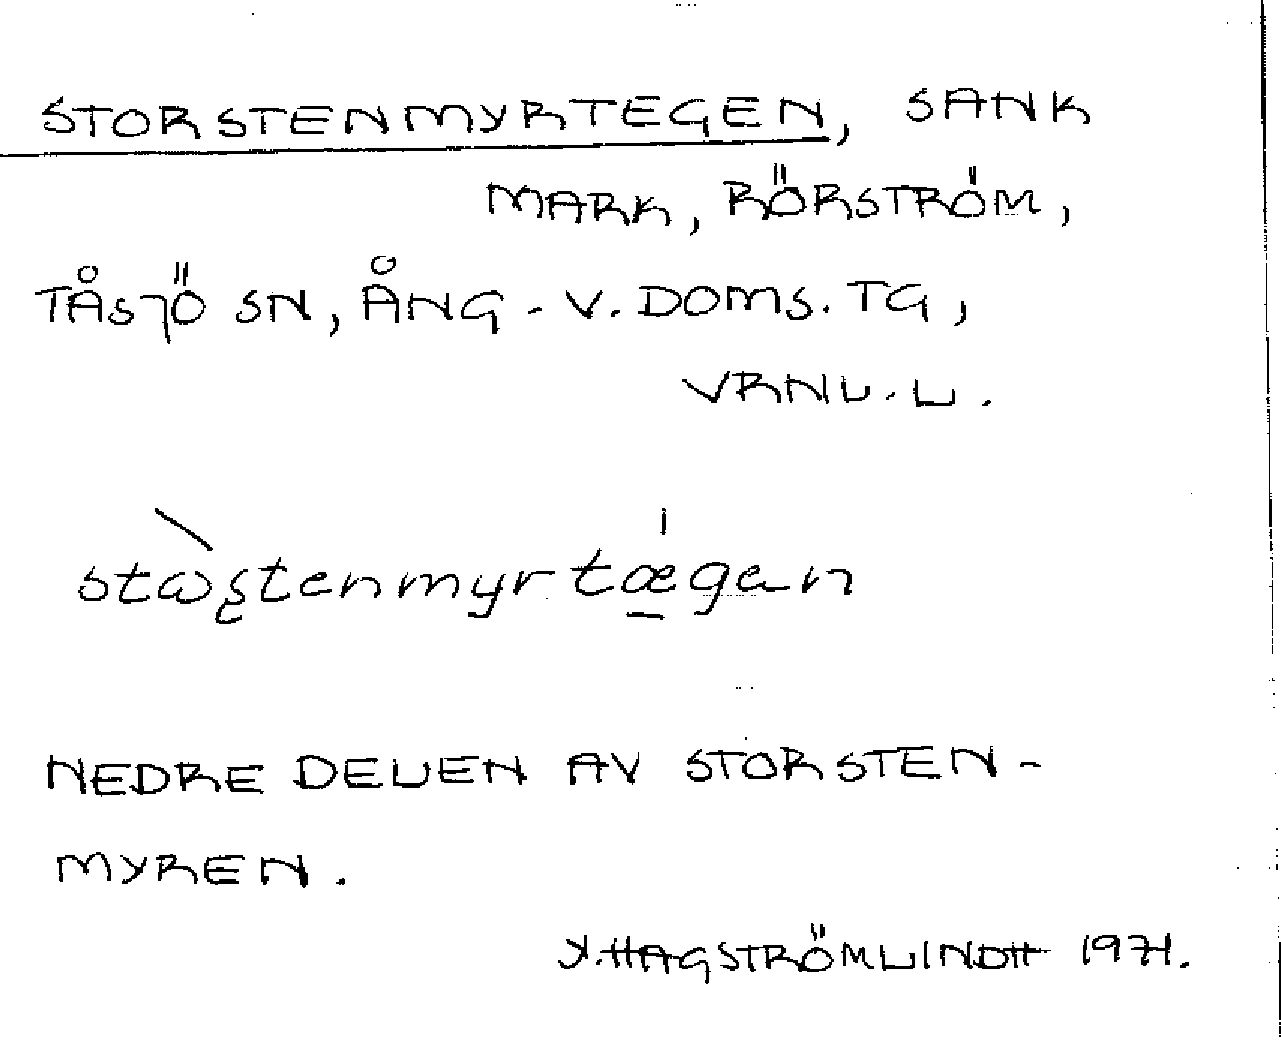 STORSTENMYRTEGEN, SANK
MARK, RÖRSTRÖM,
TÅSJÖ SN, ÅNG. V. DOMS. TG,
VRNL. L.
stꞷ̀ʂtenmyrtǽ̲gan
NEDRE DELEN AV STORSTEN-
MYREN.
Y. HAGSTRÖMLINDH 1971.